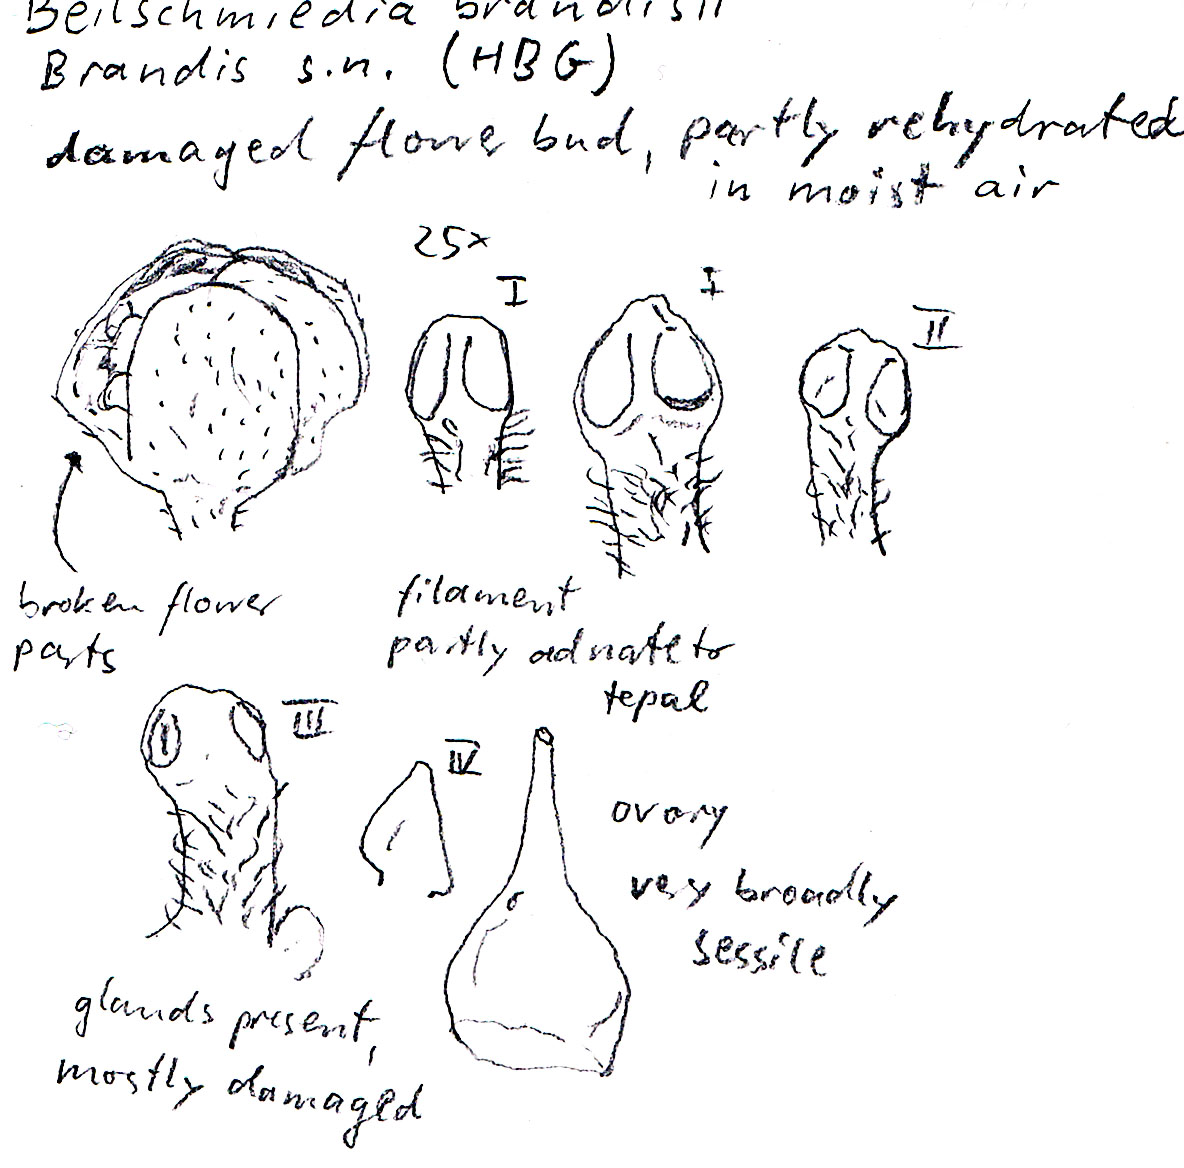 Beilschmiedia brandisii
Brandis s.n. (HBG)
damaged flower bud, partly rehydrated
in moist air
25x
I
I
II
broken flower
parts
filament
partly adnate to
tepal
III
IV
ovary
very broadly
sessile
glands present,
mostly damaged